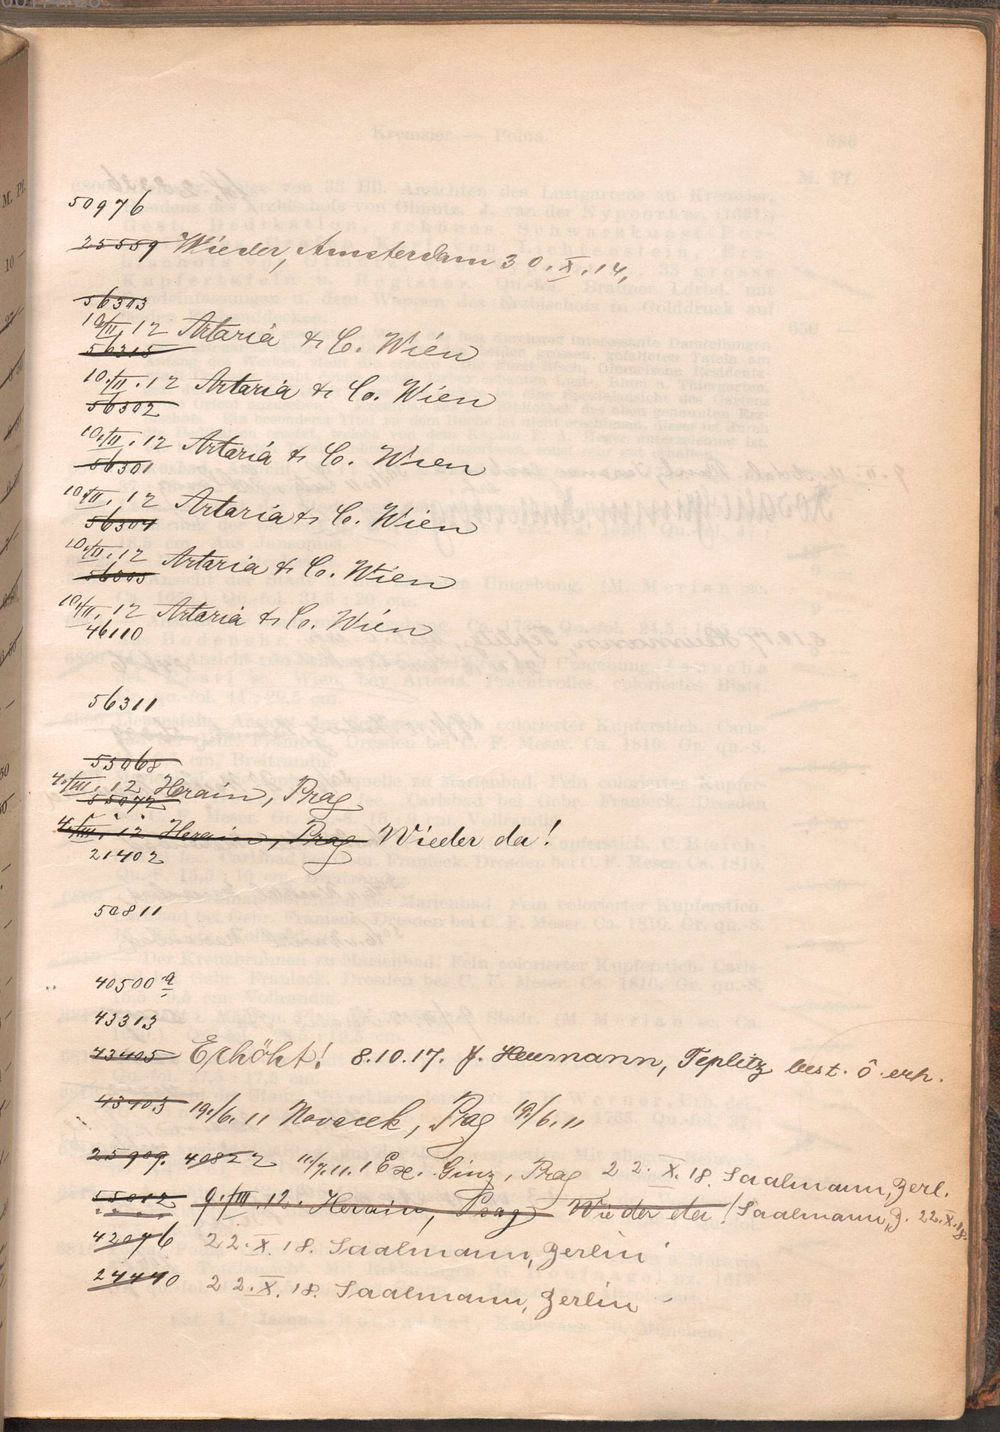 50976
25559 Wieder, Amsterdam 30.X.14,
56303
10/II.12 Artaria & Co. Wien
56315
10.II.12 Artaria & Co. Wien
56302
10/II.12 Artaria & Co. Wien
56301
10/II.12 Artaria & Co. Wien
56304
10/II.12 Artaria & Co. Wien
56305
10/II.12 Artaria & Co. Wien
46110
56311
55068
4./III.12 Herain, Prag
55072
4./III.12 Herain, Prag Wieder da!
21402
50811
40500 a
43313
43405 Erhöht! 8.10.17. J. Heumann, Teplitz best. ô erh.
43403 19/6.11 Novacek, Prag 19/6.11
25909. 40822 11/7.11. 1 Ex. Ginz, Prag 22.X.18. Saalmann, Berl.
55012 9./III.12. Herain, Prag Wieder da! Saalmann, B. 22.X.18.
42076 22.X.18. Saalmann, Berlin
24440 22.X.18. Saalmann, Berlin